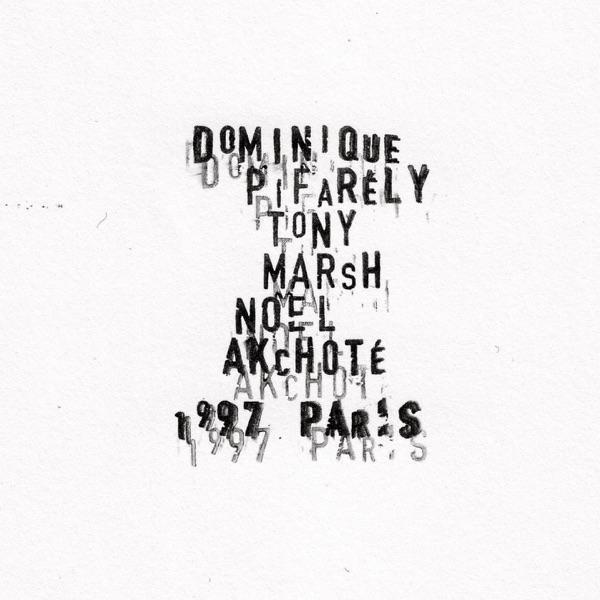 DoMINIQUE
PiFARÉLY
ToNY
MARsH
NOËL
AKcHOTÉ
1997 PARiS